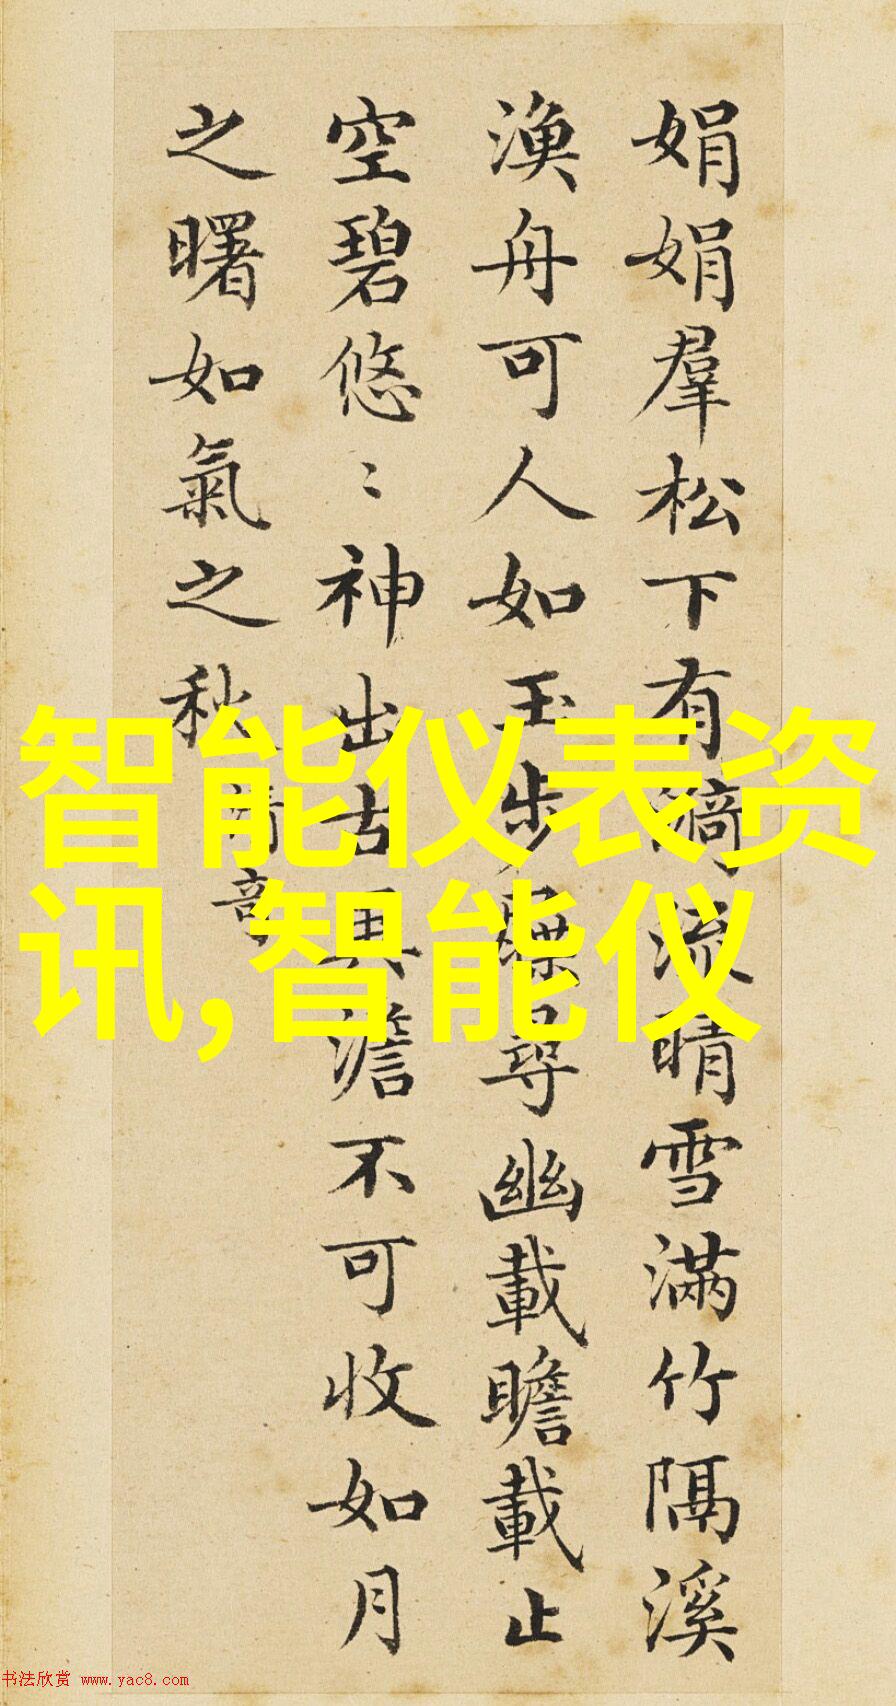 娟娟羣松下有漪流晴雪滿竹隔溪
漁舟可人如玉步屧尋幽載瞻載止
空碧悠〻神出古異澹不可收如月
之曙如氣之秋
清奇
智能仪表资
讯,智能仪
书法欣赏 www.yac8.com